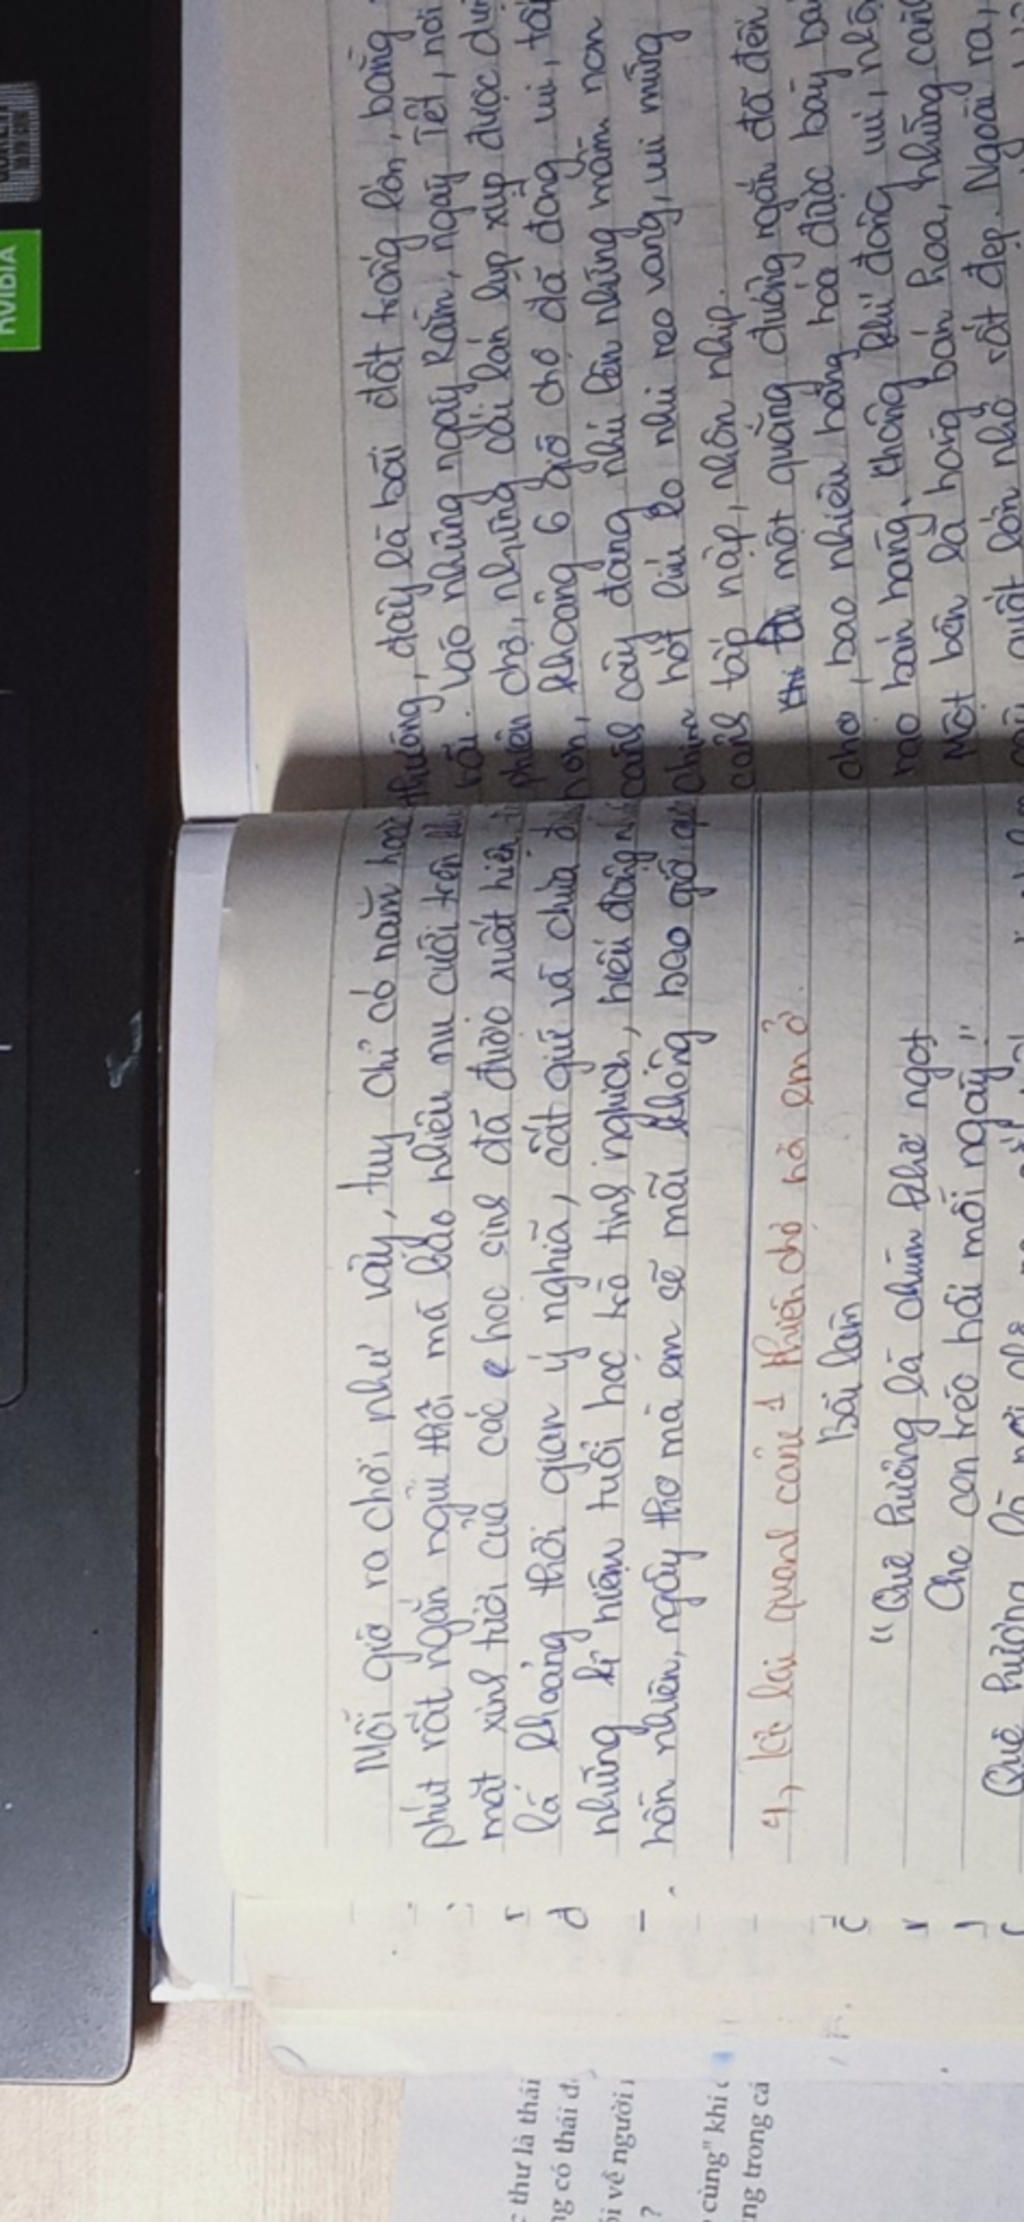 Mỗi giờ ra chơi như vậy, tuy chỉ có năm
phút rất ngắn ngủi thôi mà bao nhiêu nụ cười trên
mặt xinh tươi của các học sinh đã được xuất hiện
là khoảng thời gian ý nghĩa, cất giữ và chứa
những kỉ niệm tuổi học trò tinh nghịch, hiếu động
hồn nhiên, ngây thơ mà em sẽ mãi không bao giờ
4, tả lại quanh cảnh 1 phiên chợ nà em ở
Bài làm
"Quê hương là chùm khế ngọt
Cho con trèo hái mỗi ngày"
Quê hương là nơi
thường, đây là bãi đất trống lớn, bằng
vào những ngày Rằm, ngày Tết, nơi
phiên chợ, những cái lán lụp xụp được
hơn, khoảng 6 giờ chợ đã đông vui,
cành cây đang nhú lên những mầm non
chim hót líu lo như reo vang, vui mừng
càng tấp nập, nhộn nhịp.
Khi đi một quãng đường ngắn đã đến
chợ, bao nhiêu hàng hoá được bày
rao bán hàng, không khí đông vui,
Một bên là hàng bán hoa, những
lớn nhỏ rất đẹp. Ngoài ra,
NVIDIA
thư là thái
có thái
về người
?
cùng" khi
trong